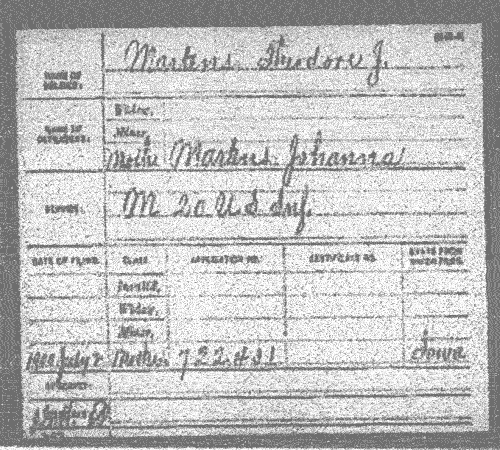 Martens, Theodore J.
NAME OF SOLDIER:
NAME OF DEPENDENT:
Widow,
Minor,
Mother Martens, Johanna
SERVICE:
M 20 U S Inf.
DATE OF FILING. CLASS. APPLICATION NO. CERTIFICATE NO. STATE FROM WHICH FILED.
Invalid,
Widow,
Minor,
July 2 Mother, 722.431 Iowa